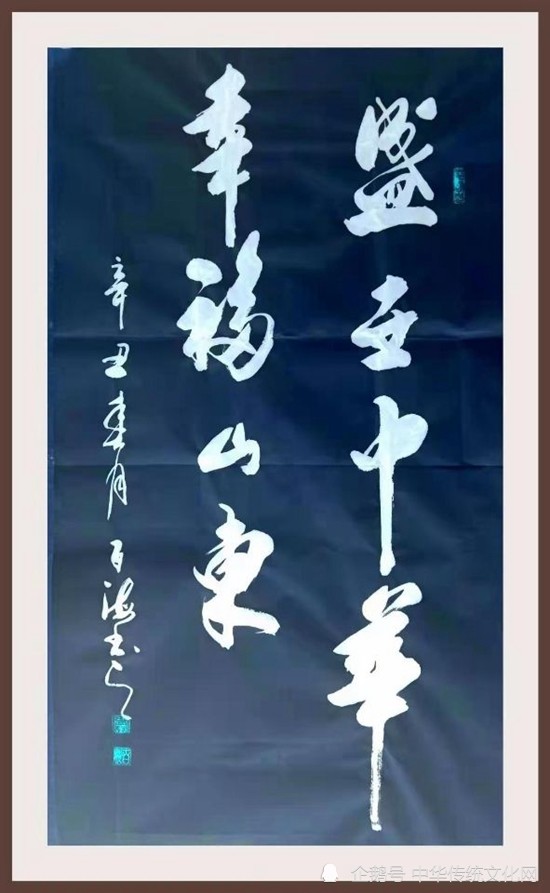 盛世中华
幸福山东
辛丑春月百海书
企鹅号 中华传统文化网